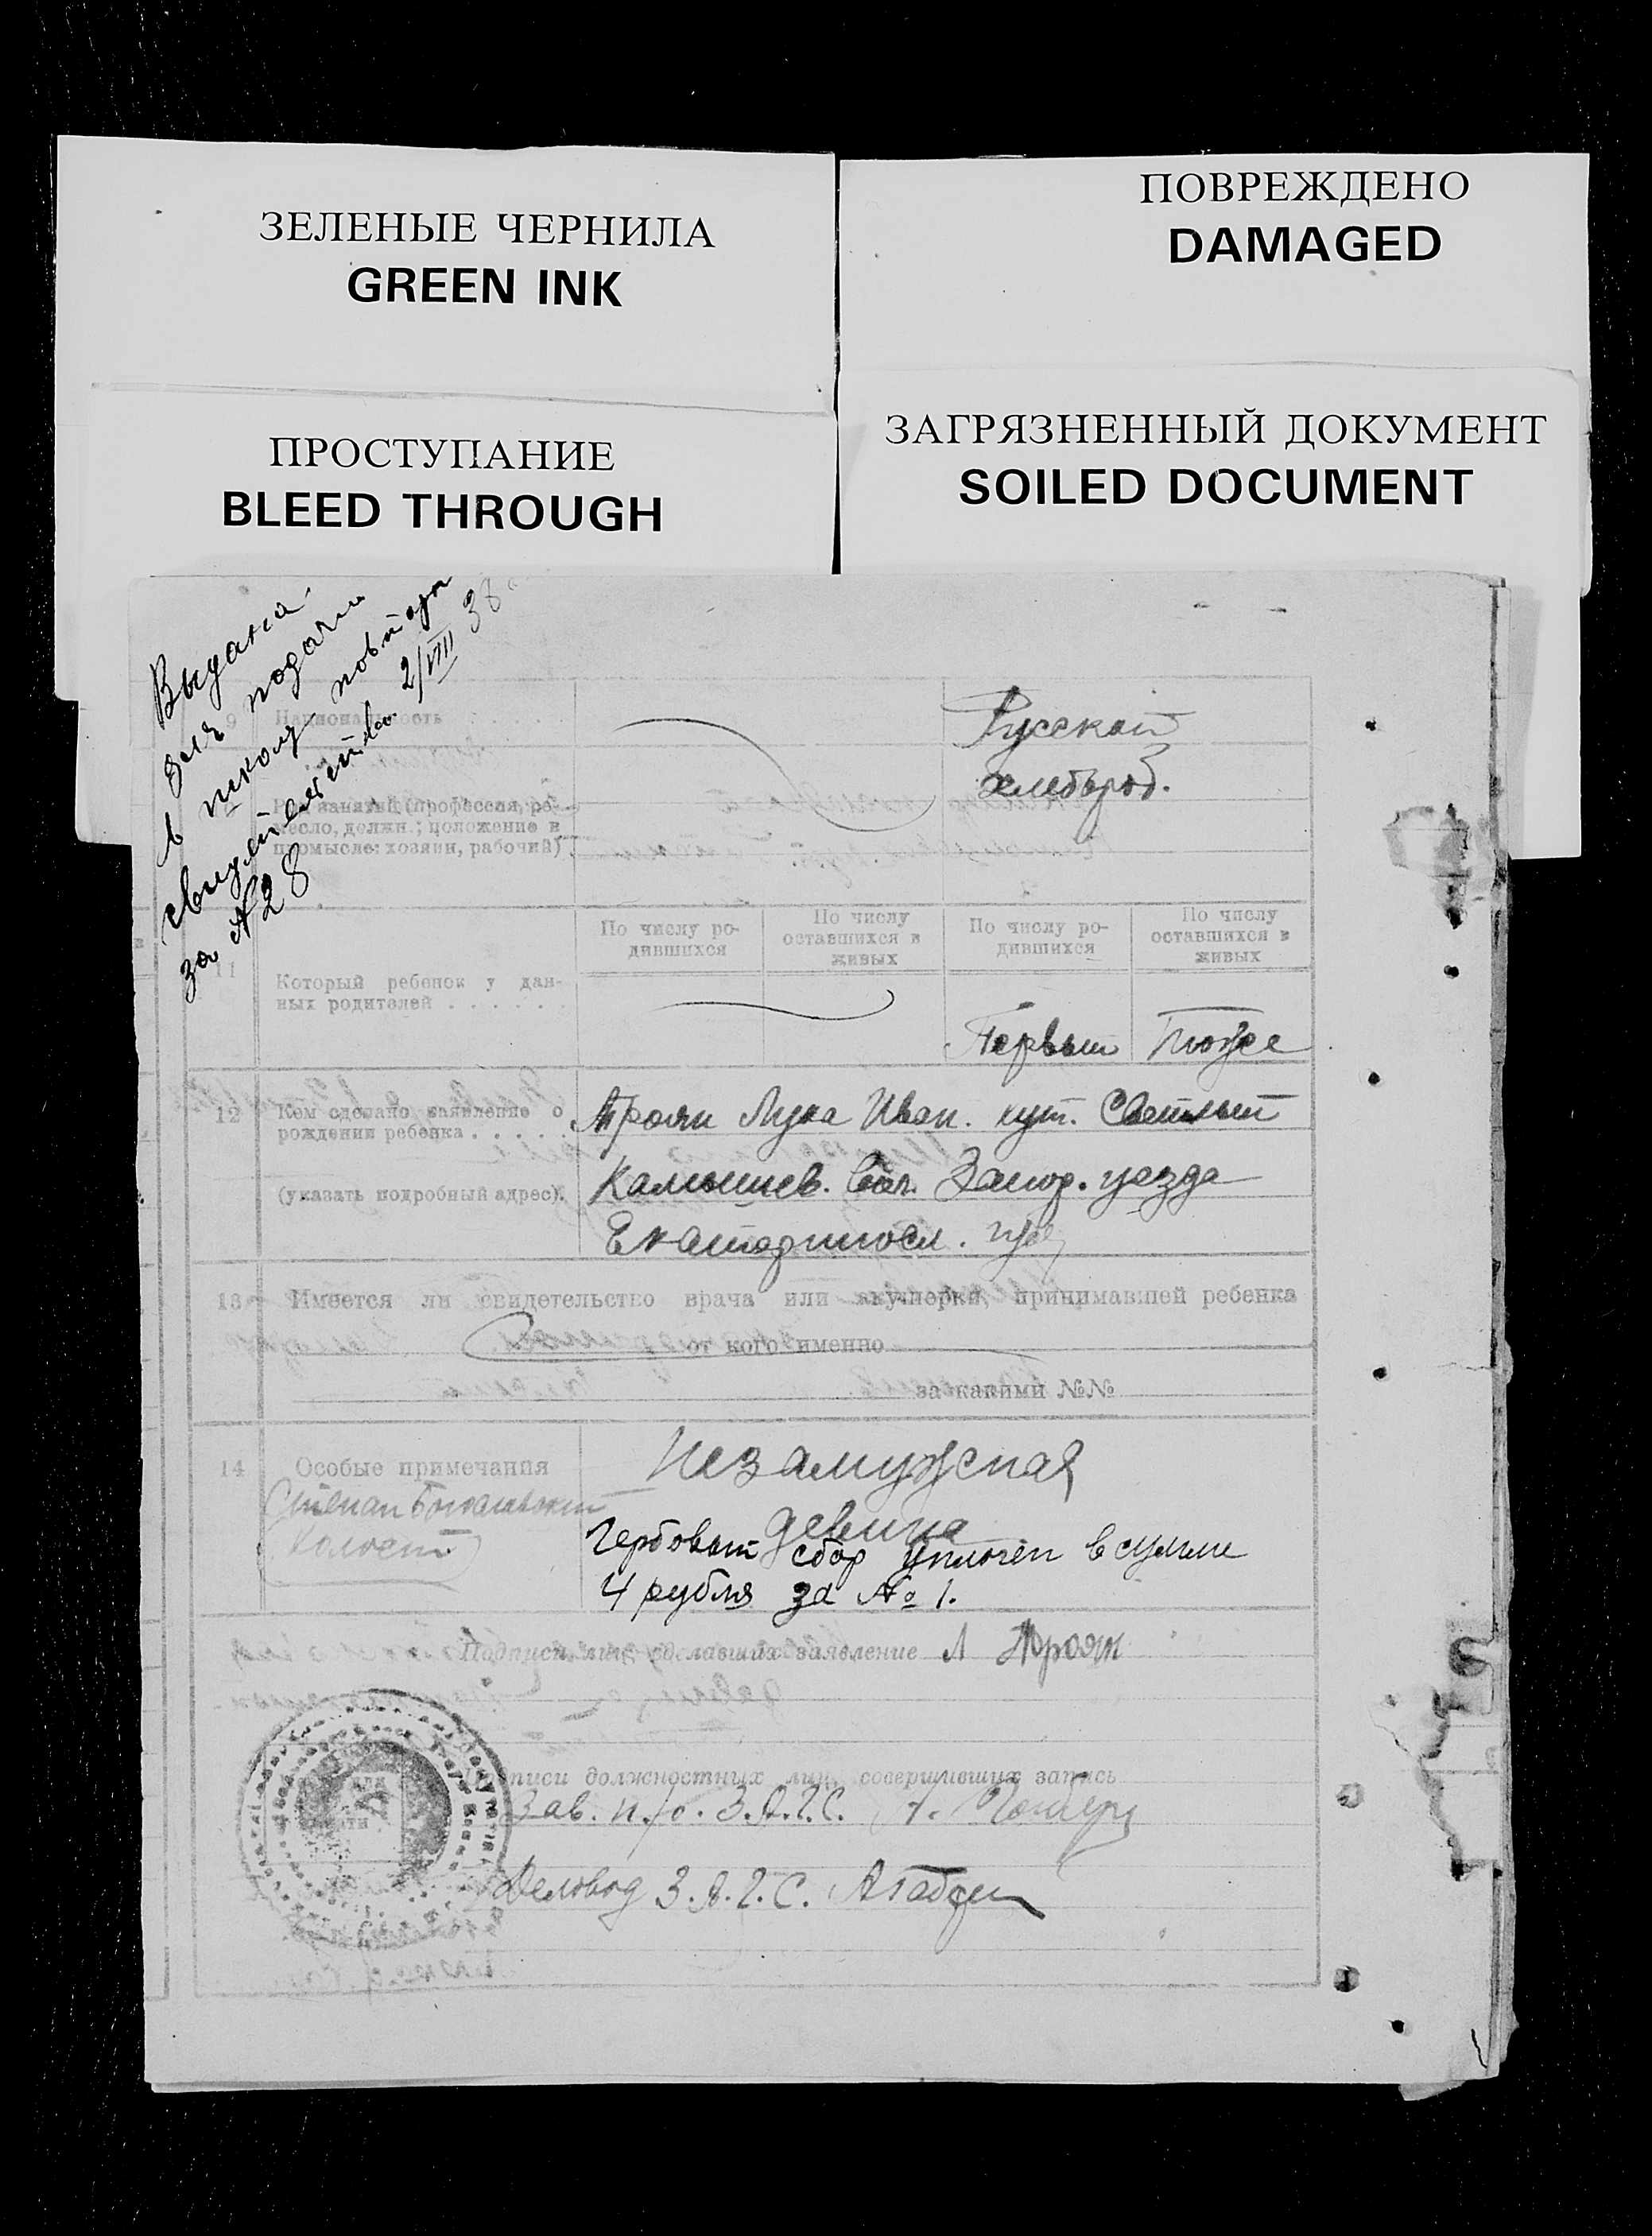 ЗЕЛЕНЫЕ ЧЕРНИЛА
GREEN INK
ПОВРЕЖДЕНО
DAMAGED
ПРОСТУПАНИЕ
BLEED THROUGH
ЗАГРЯЗНЕННЫЙ ДОКУМЕНТ
SOILED DOCUMENT
Выдана
для подачи
в школу повтор
свидетельство 2/VIII 38
за № 28
9 Национальность
Русской
хлебороб.
Род занятий (профессия, ре-
месло, должн.; положение в
промысле: хозяин, рабочий)
По числу ро-
дившихся
По числу
оставшихся в
живых
По числу ро-
дившихся
По числу
оставшихся в
живых
11 Который ребенок у дан-
ных родителей
Первый Тоже
12 Кем сделано заявление о
рождении ребенка
(указать подробный адрес).
Троян Лука Иван. хут. Светлый
Камышев. вол. Запор. уезда
Екатериносл. губ
13 Имеется ли свидетельство врача или акушерки, принимавшей ребенка
от кого именно
за какими №№
14 Особые примечания
Незамужная
девица
Степан
холост
Гербовый сбор уплочен в сумме
4 рубля за № 1.
Подписи лиц, сделавших заявление Л Троян
Подписи должностных лиц, совершивших запись
Зав. п/о. З.А.Г.С. А.
Деловод З.А.Г.С.